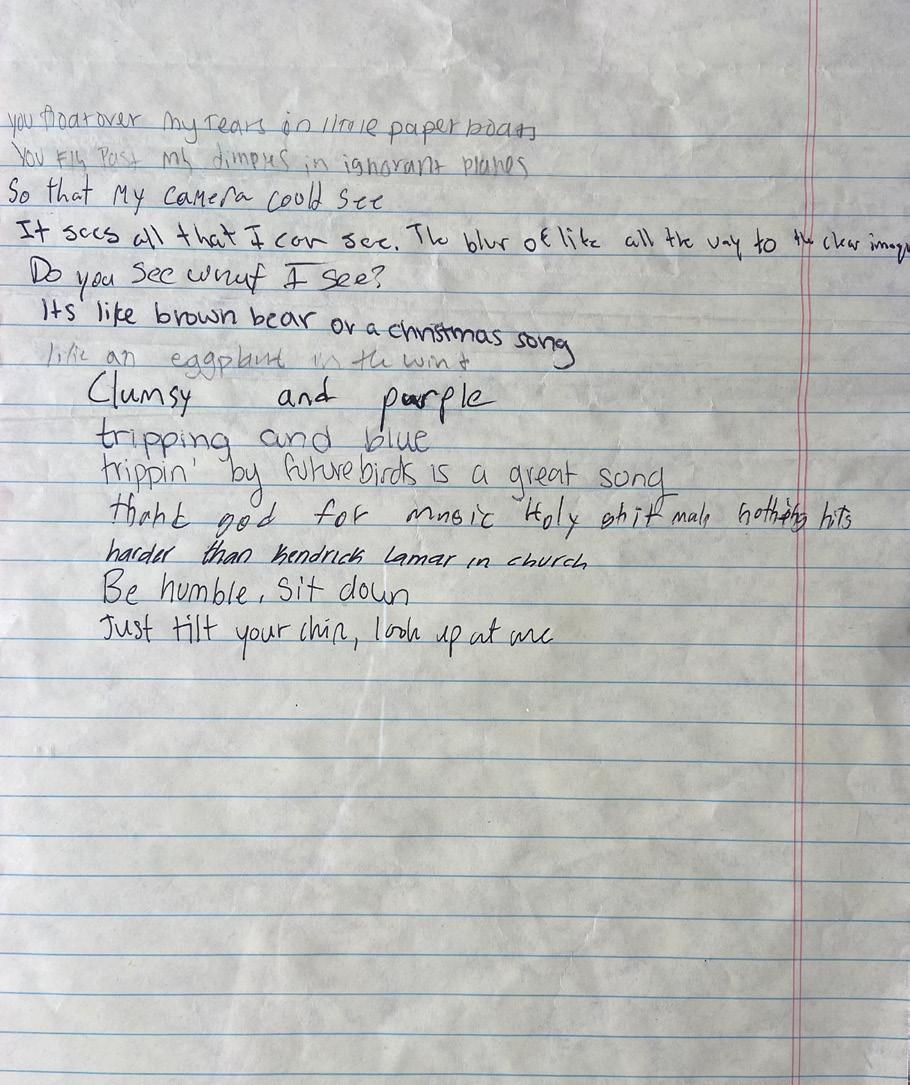 you float over my tears in little paper boats
You Fly Past my dimples in ignorant planes
So that my camera could see
It sees all that I can see. The blur of like all the way to the clear image
Do you see what I see?
Its like brown bear or a christmas song
like an eggplant in the
Clumsy and purple
tripping and blue
trippin' by futurebirds is a great song
thank god for music Holy shit man nothing hits
harder than kendrick lamar in church
Be humble, sit down
Just tilt your chin, look up at me